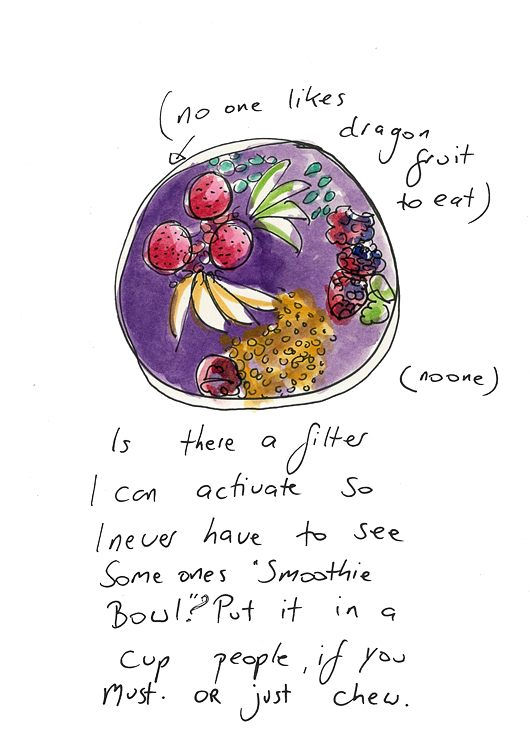 (no one likes
dragon
fruit
to eat)
(no one)
Is there a filter
I can activate so
I never have to see
Some ones "Smoothie
Bowl"? Put it in a
cup people, if you
must. OR just chew.